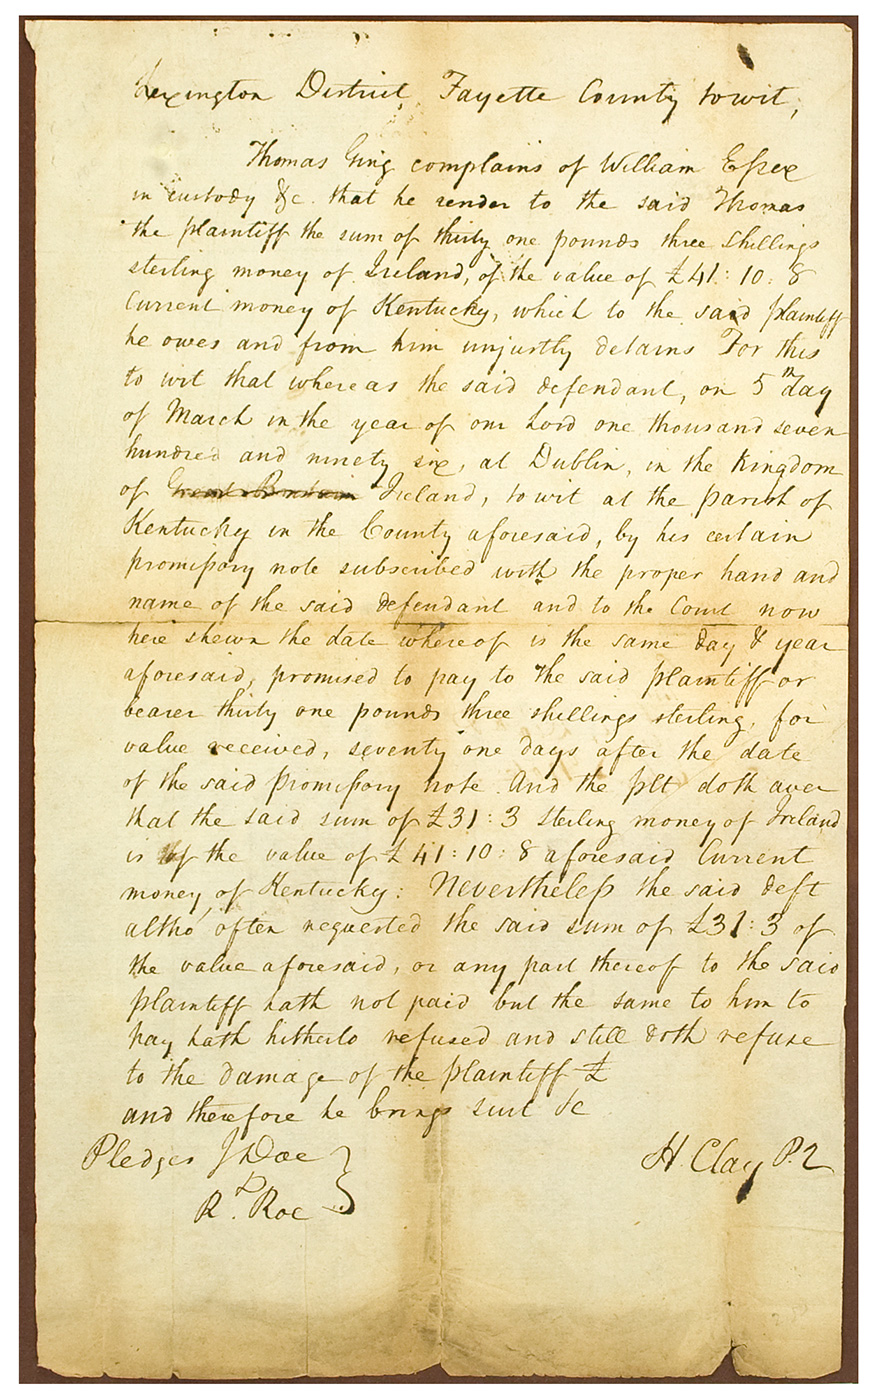 Lexington District, Fayette County towit,
Thomas Ging complains of William Essex
in custody &c. that he render to the said Thomas
the plaintiff the sum of thirty one pounds three shillings
sterling money of Ireland, of the value of £41:10:8
Current money of Kentucky, which to the said plaintiff
he owes and from him unjustly detains For this
to wit that whereas the said defendant, on 5th day
of March in the year of our Lord one thousand seven
hundred and ninety six, at Dublin, in the Kingdom
of Great Britain Ireland, towit at the parish of
Kentucky in the County aforesaid, by his certain
promissory note subscribed with the proper hand and
name of the said defendant and to the Court now
here shewn the date whereof is the same day & year
aforesaid, promised to pay to the said plaintiff or
bearer thirty one pounds three shillings sterling, for
value received, seventy one days after the date
of the said promissory note. And the plt doth aver
that the said sum of £31:3 sterling money of Ireland
is of the value of £41:10:8 aforesaid Current
money of Kentucky: Nevertheless the said deft
altho' often requested the said sum of £31:3 of
the value aforesaid, or any part thereof to the said
plaintiff hath not paid but the same to him to
pay hath hitherto refused and still doth refuse
to the damage of the plaintiff £
and therefore he brings suit &c
Pledges J Doe H. Clay P.Q
Rd. Roe